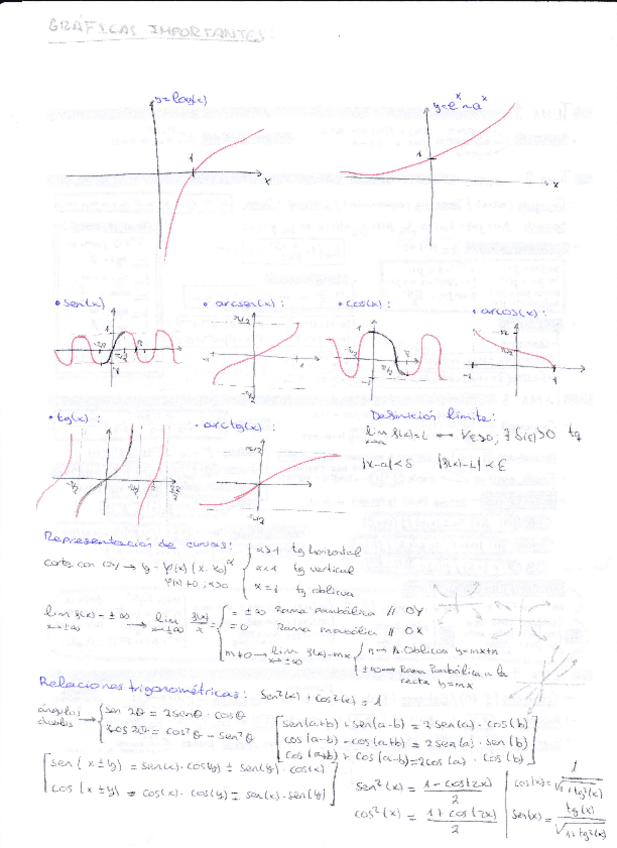 GRÁFICAS IMPORTANTES:
y=log(x)
y=e^x ~ a^x
1
x
1
x
• sen(x)
• arcsen(x):
• cos(x):
• arcos(x):
• tg(x):
• arctg(x):
Definición límite:
lim f(x)=L ↔ ∀ε>0, ∃ δ(ε)>0 tq
|x-a|<δ |f(x)-L|<ε
Representación de curvas:
α>1 tg horizontal
corte con OX → y = φ(x)(x-x₀)^α
α<1 tg vertical
φ(x)≠0, α>0
α=1 tg oblicua
lim f(x) = ±∞ → lim f(x)/x =
x→±∞ x→±∞
= ±∞ Rama parabólica // OY
= 0 Rama parabólica // OX
m≠0 → lim f(x)-mx
n → A. Oblicua y=mx+n
±∞ → Rama Parabólica a la
recta y=mx
Relaciones trigonométricas: sen²(x)+cos²(x)=1
ángulos dobles →
sen 2θ = 2senθ · cosθ
cos 2θ = cos²θ - sen²θ
sen(a+b)+sen(a-b)=2sen(a)·cos(b)
cos(a-b)-cos(a+b)=2sen(a)·sen(b)
cos(a+b)+cos(a-b)=2cos(a)·cos(b)
sen(x±y) = sen(x)·cos(y) ± sen(y)·cos(x)
cos(x±y) = cos(x)·cos(y) ∓ sen(x)·sen(y)
sen²(x) = 1-cos(2x)/2
cos²(x) = 1+cos(2x)/2
cos(x) = 1/√1+tg²(x)
sen(x) = tg(x)/√1+tg²(x)